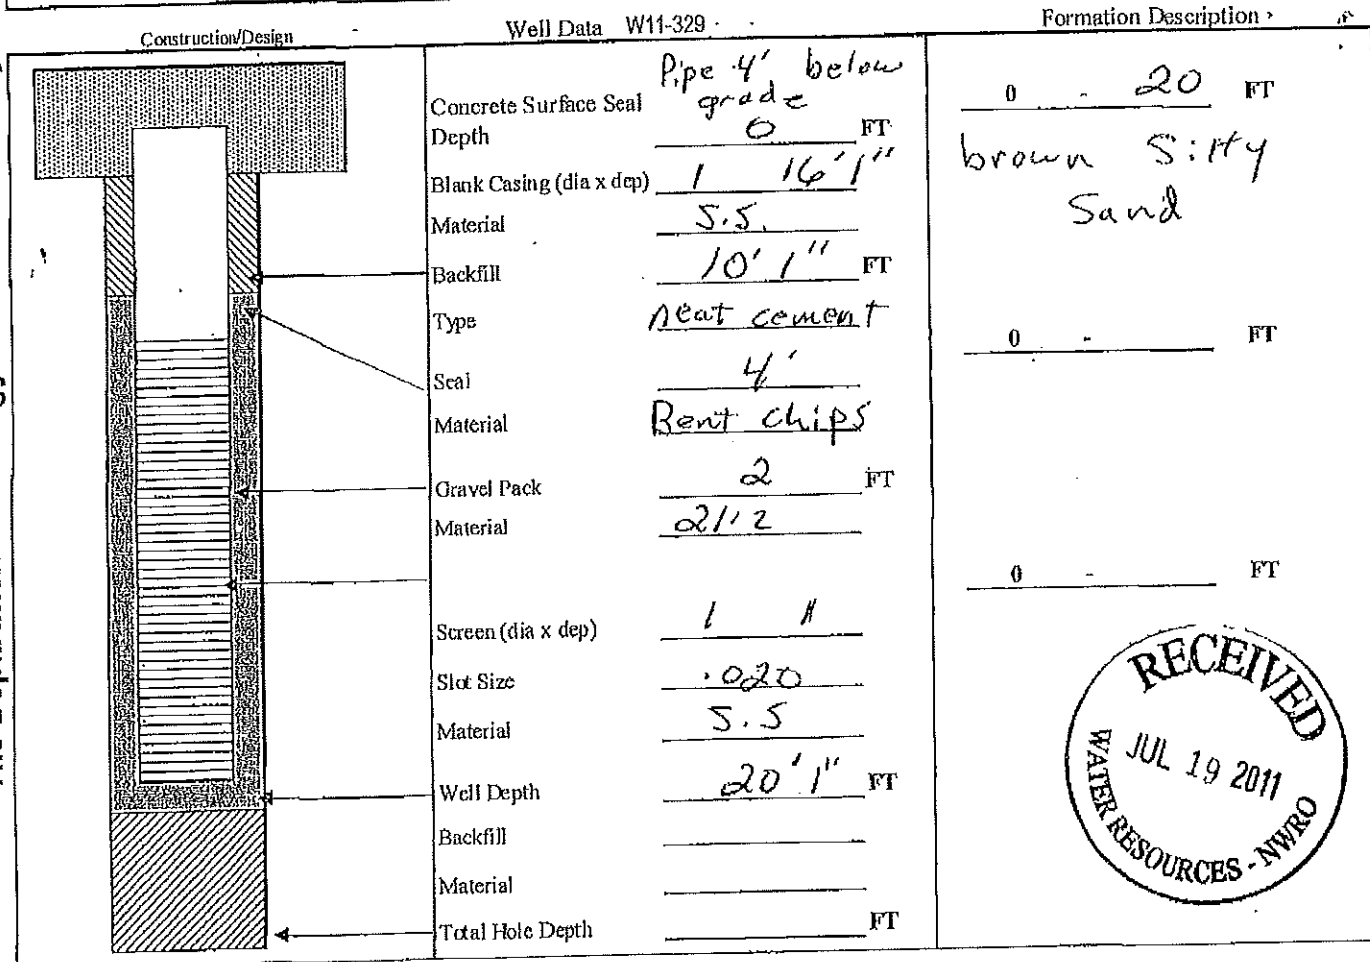 Construction/Design
Well Data W11-329
Formation Description
Pipe 4' below
grade
Concrete Surface Seal
Depth 0 FT
Blank Casing (dia x dep) 1 16'1"
Material S.S.
Backfill 10'1" FT
Type neat cement
Seal 4'
Material Bent chips
Gravel Pack 2 FT
Material
Screen (dia x dep) 1
Slot Size .020
Material S.S
Well Depth 20'1" FT
Backfill
Material
Total Hole Depth FT
0 - 20 FT
brown Silty
Sand
0 - FT
0 - FT
RECEIVED
JUL 19 2011
WATER RESOURCES - NWRO